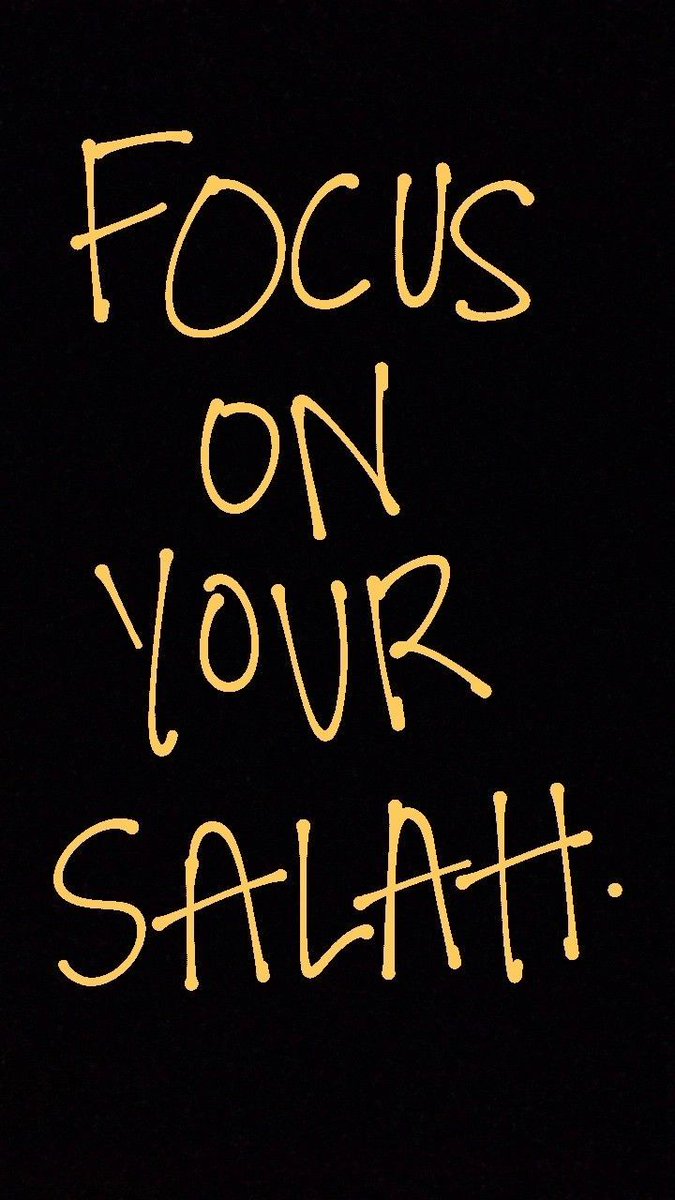 FOCUS
ON
YOUR
SALAH.